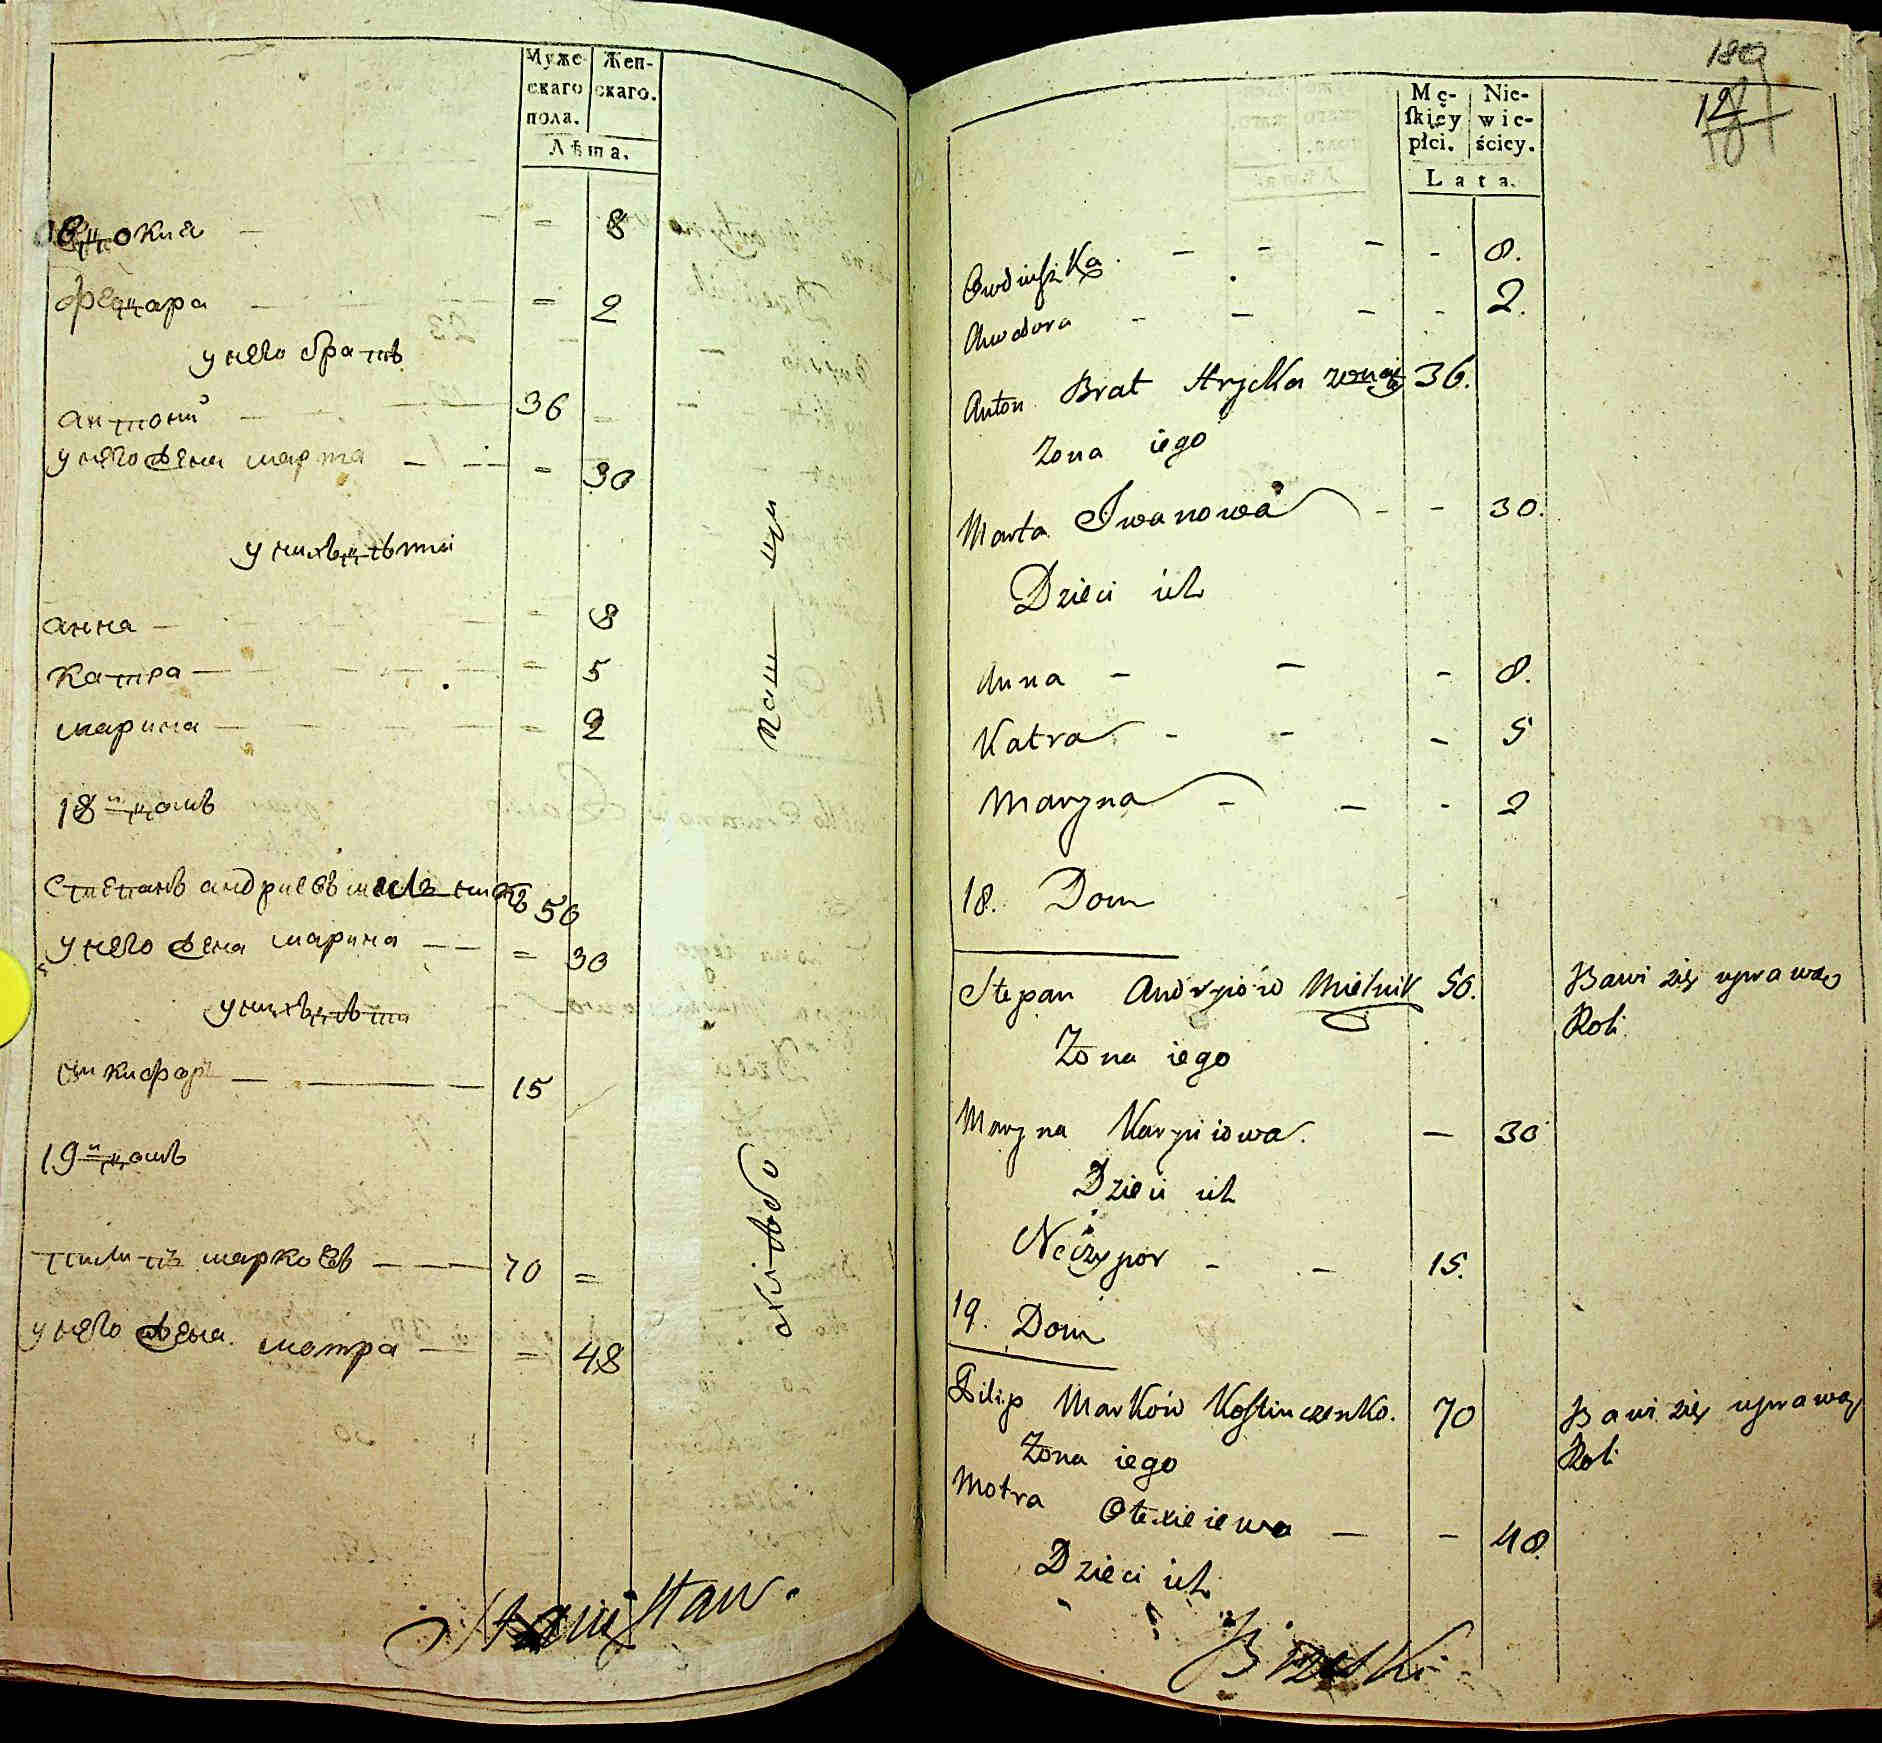 Муже- Жен-
скаго скаго.
пола.
Лѣта.
Евдокия - = 8
Федора - = 2
у него братъ
антони - 36 -
у него жена марта - = 30
у нихъ дѣти
анна - = 8
катра - = 5
марина - = 2
18й домъ
степанъ андриевъ мельникъ 56
у него жена марина - = 30
у нихъ дѣти
никифоръ - 15
19й домъ
пилипъ марковъ - 70 =
у него жена мотра - = 48
Stanisław.
189
Mę- Nie-
skiey wie-
płci. ściey.
Lata.
Owdiuszka - - - - 8.
Chwedora - - - - 2.
Anton Brat Hrycka 36.
Żona iego
Marta Iwanowa - - 30.
Dzieci ich
Anna - - - 8.
Katra - - - 5
Maryna - - - 2
18. Dom
Stepan Andryiów Mielnik 56. Bawi się uprawą
Roli
Żona iego
Maryna Karpiowa. - 30
Dzieci ich
Neczypor - - 15.
19. Dom
Pilip Marków Kostiuczenko. 70 Bawi się uprawą
Roli
Żona iego
Motra Olexieiewa - - 48.
Dzieci ich